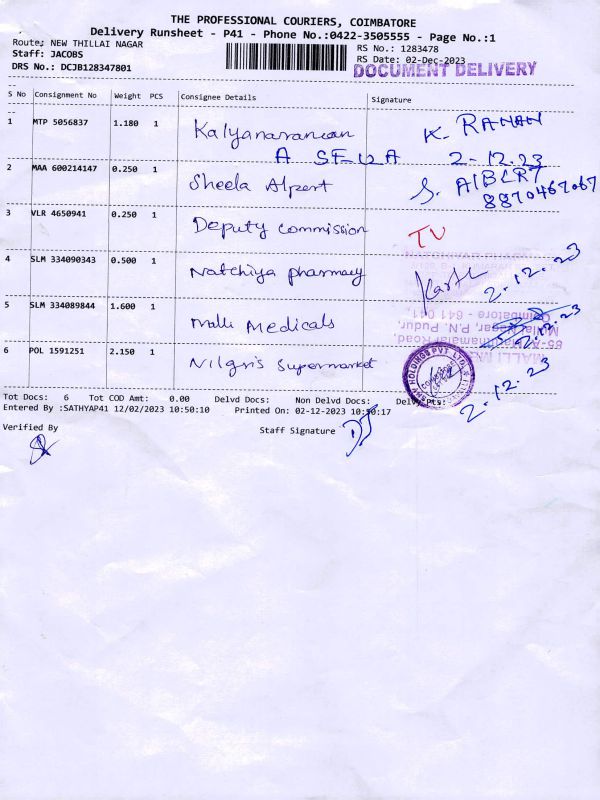 THE PROFESSIONAL COURIERS, COIMBATORE
Delivery Runsheet - P41 - Phone No.:0422-3505555 - Page No.:1
Route: NEW THILLAI NAGAR
Staff: JACOBS
DRS No.: DCJB128347801
RS No.: 1283478
RS Date: 02-Dec-2023
DOCUMENT DELIVERY
S No Consignment No Weight PCS Consignee Details Signature
1 MTP 5056837 1.180 1 Kalyanaraman K. RAMAN
A 2-12.23
2 MAA 600214147 0.250 1 Sheela Alpert S. AlBERT
8870467067
3 VLR 4650941 0.250 1 Deputy commission TV
4 SLM 334090343 0.500 1 Natchiya pharmacy 2.12.23
5 SLM 334089844 1.600 1 Malli Medicals 2.12.23
6 POL 1591251 2.150 1 Nilgiris Supermarket 2.12.23
Tot Docs: 6 Tot COD Amt: 0.00 Delvd Docs: Non Delvd Docs: Delvy Pts:
Entered By :SATHYAP41 12/02/2023 10:50:10 Printed On: 02-12-2023 10:50:17
Verified By Staff Signature